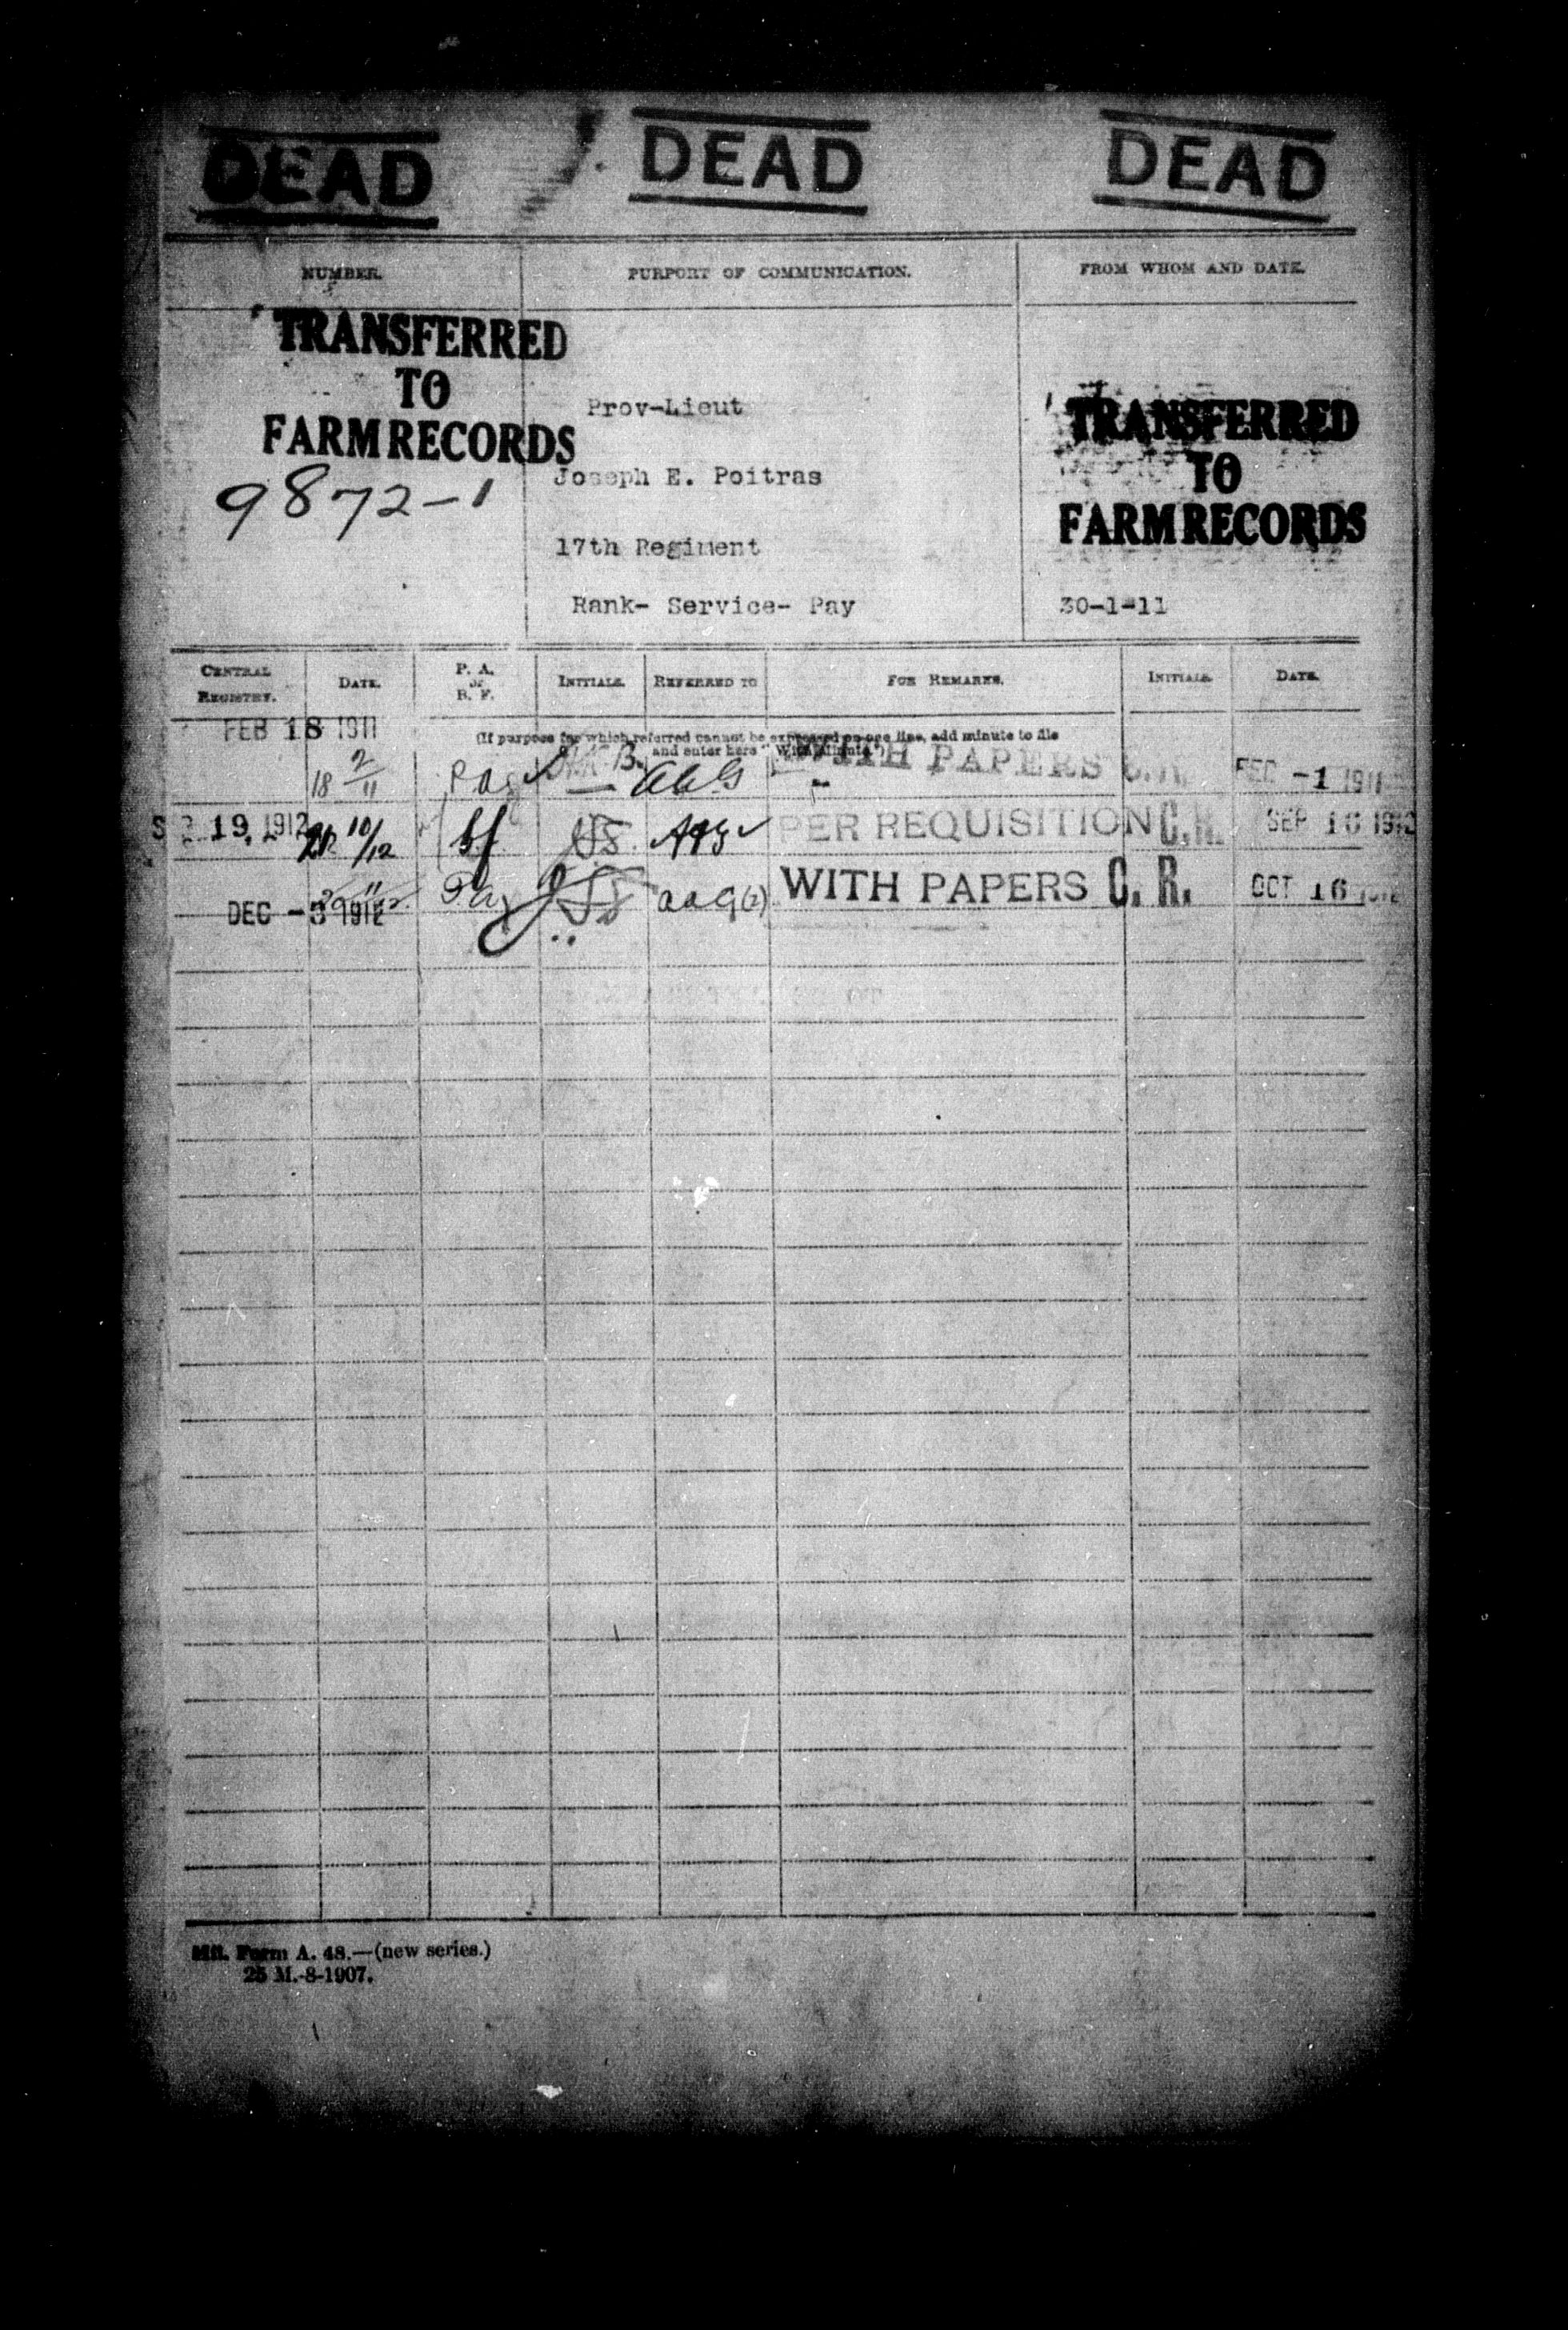 DEAD DEAD DEAD
NUMBER. PURPORT OF COMMUNICATION. FROM WHOM AND DATE.
TRANSFERRED
TO
FARM RECORDS
9872-1
Prov-Lieut
Joseph E. Poitras
17th Regiment
Rank- Service- Pay
TRANSFERRED
TO
FARM RECORDS
30-1-11
CENTRAL REGISTRY. DATE. P. A. or B. F. INITIALS. REFERRED TO FOR REMARKS. INITIALS. DATE.
FEB 18 1911
(If purpose for which referred cannot be expressed on one line, add minute to file
and enter here "With Minute.")
18 2/11 WITH PAPERS C. R. -1 1911
19, 1912 10/12 bf PER REQUISITION C. R. SEP 16 1912
DEC -3 1912 aag(2) WITH PAPERS C. R. OCT 16
Mil. Form A. 48.—(new series.)
25 M.-8-1907.